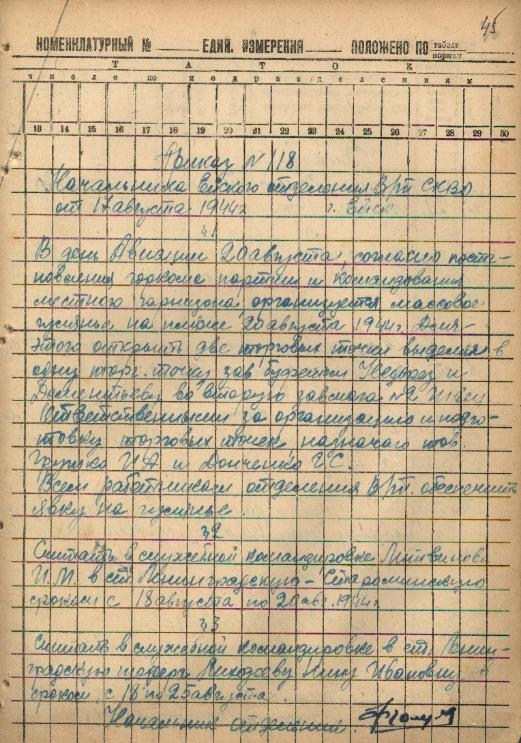 45
НОМЕНКЛАТУРНЫЙ № ЕДИН. ИЗМЕРЕНИЯ ПОЛОЖЕНО ПО табели нормы
Т А Т О К
числе по подразделениях
13 14 15 16 17 18 19 20 21 22 23 24 25 26 27 28 29 30
Приказ № 118
Начальника Ейского отделения ВРТ СКВО
от 17 августа 1944г г. Ейск
§1
В день Авиации 20 августа, согласно поста-
новления горкома партии и командования
местного гарнизона организуется массовое
гулянье на пляже 20 августа 1944г. Для
этого открыть две торговых точки выделив в
одну торг. точку зав. буфетом и
Дементьеву во вторую завмага №2 Швец
Ответственными за организацию и подго-
товку торговых точек назначаю тов.
и Донченко Г.С.
Всем работникам отделения ВРТ обеспечить
явку на гулянье.
§2
Считать в служебной командировке Литвинова
И.М. в ст. Ленинградскую - Староминскую
сроком с 18 августа по 20 авг. 1944г
§3
Считать в служебной командировке в ст. Ленин-
градскую шофера Нину Ивановну
сроком с 18 по 25 августа.
Начальник отделения